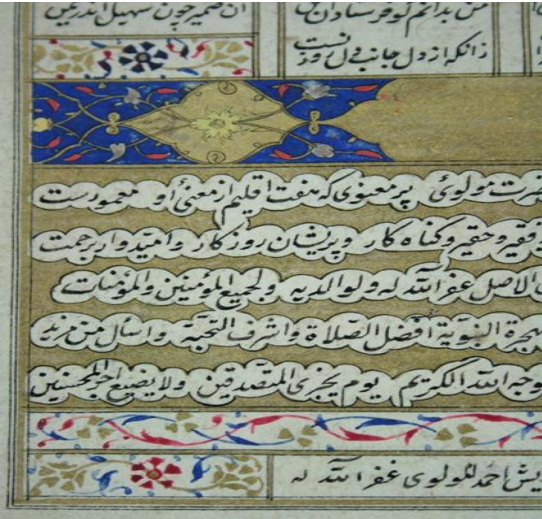 من بدانم کو فرستاد آن بمن
آن ضمیر چون سهیل اندر یمن
زانکه از دل جانب دل روزنست
حضرت مولوئ پر معنوی که هفت اقلیم از معنئ او معمورست
فقیر و حقیر و کناه کار و پریشان روزکار و امیدوار برحمت
الاصل غفر الله له ولوالدیه ولجمیع المؤمنین والمؤمنات
هجرة النبویة افضل الصلاة واشرف التحیة واسأل من مزید
وجه الله الکریم یوم یجزی المتصدقین ولا یضیع اجر المحسنین
احمد المولوی غفر الله له